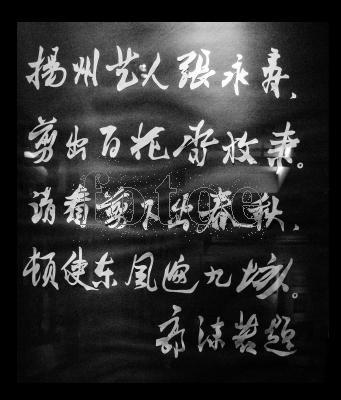 揚州艺人張永寿、
剪出百花齐放来。
请看剪下出春秋、
顿使东风遍九垓。
郭沫若题
fotoe